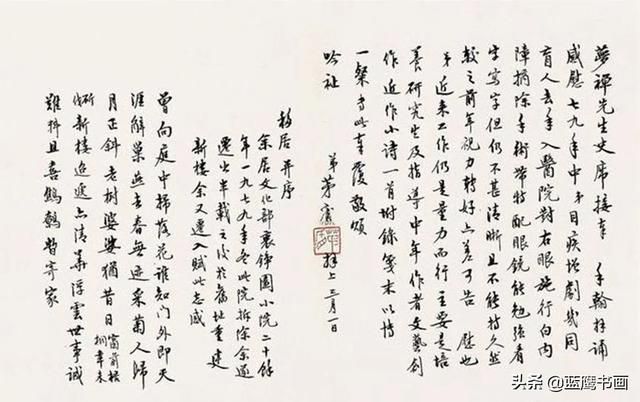 夢禪先生史席接奉 手翰拜誦
感慰七九年中弟目疾增劇幾同
盲人去年入醫院對右眼施行白內
障摘除手術帶特配眼鏡能勉強看
字寫字但仍不甚清晰且不能持久然
較之前年視力轉好亦差可告 慰也
弟近來工作仍是量力而行主要是培
養研究生及指導中年作者文藝創
作近作小詩一首附錄箋末以博
一粲專此奉覆敬頌
吟祉 弟 拜上 三月一日
移居并序
余居文化部園小院二十餘
年一九七九年冬此院拆除余
遷出半載之後於舊址重建
新樓余又遷入賦此志感
曾向庭中掃落花誰知門外即天
涯解巢燕去春無迹采菊人歸
月正斜老樹婆娑猶昔日 窗前梧桐幸未
斫伐新樓迤邐亦清華浮雲世事誠
難料且喜鷦鷯暫寄家
头条 @蓝鹰书画